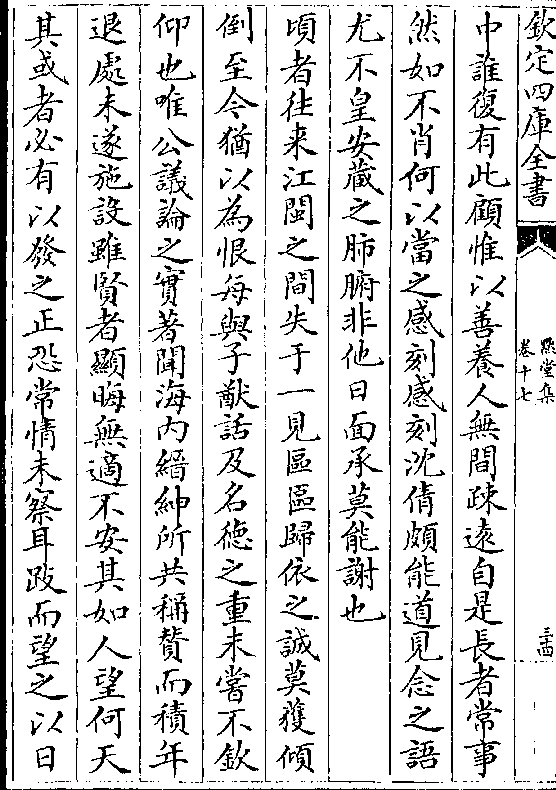 欽定四庫全書
默堂集
卷十七
三四
中誰復有此顧惟以善養人無間疎遠自是長者常事
然如不肖何以當之感刻感刻沈倩頗能道見念之語
尤不皇安藏之肺腑非他日面承莫能謝也
頃者往来江閩之間失于一見區區歸依之誠莫獲傾
倒至今猶以為恨每與子猷話及名德之重未嘗不欽
仰也唯公議論之實著聞海内縉紳所共稱贊而積年
退處未遂施設雖賢者顯晦無適不安其如人望何天
其或者必有以發之正恐常情未察耳跂而望之以日